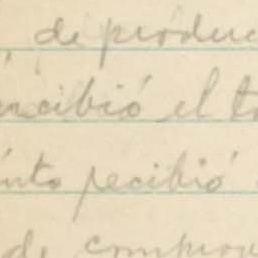 de produc
recibió el t
nto recibió
de compro